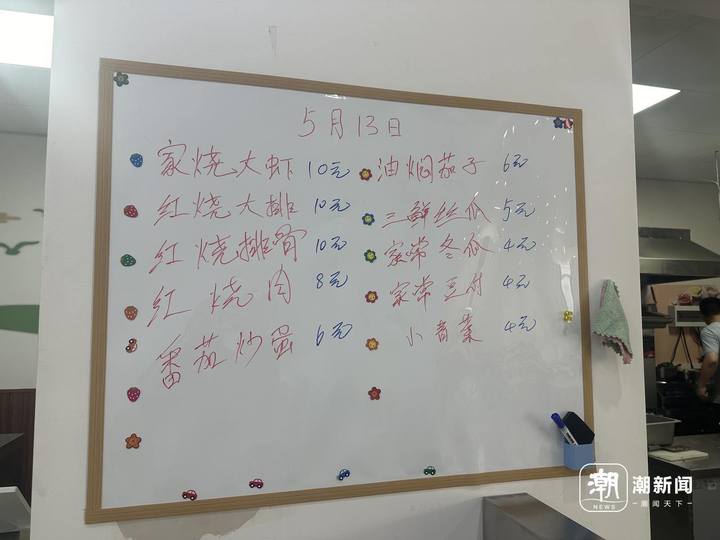 5月13日
家烧大虾 10元
红烧大排 10元
红烧排骨 10元
红烧肉 8元
番茄炒蛋 6元
油焖茄子 6元
三鲜丝瓜 5元
家常冬瓜 4元
家常豆付 4元
小青菜 4元
潮 NEWS
潮新闻
闻天下